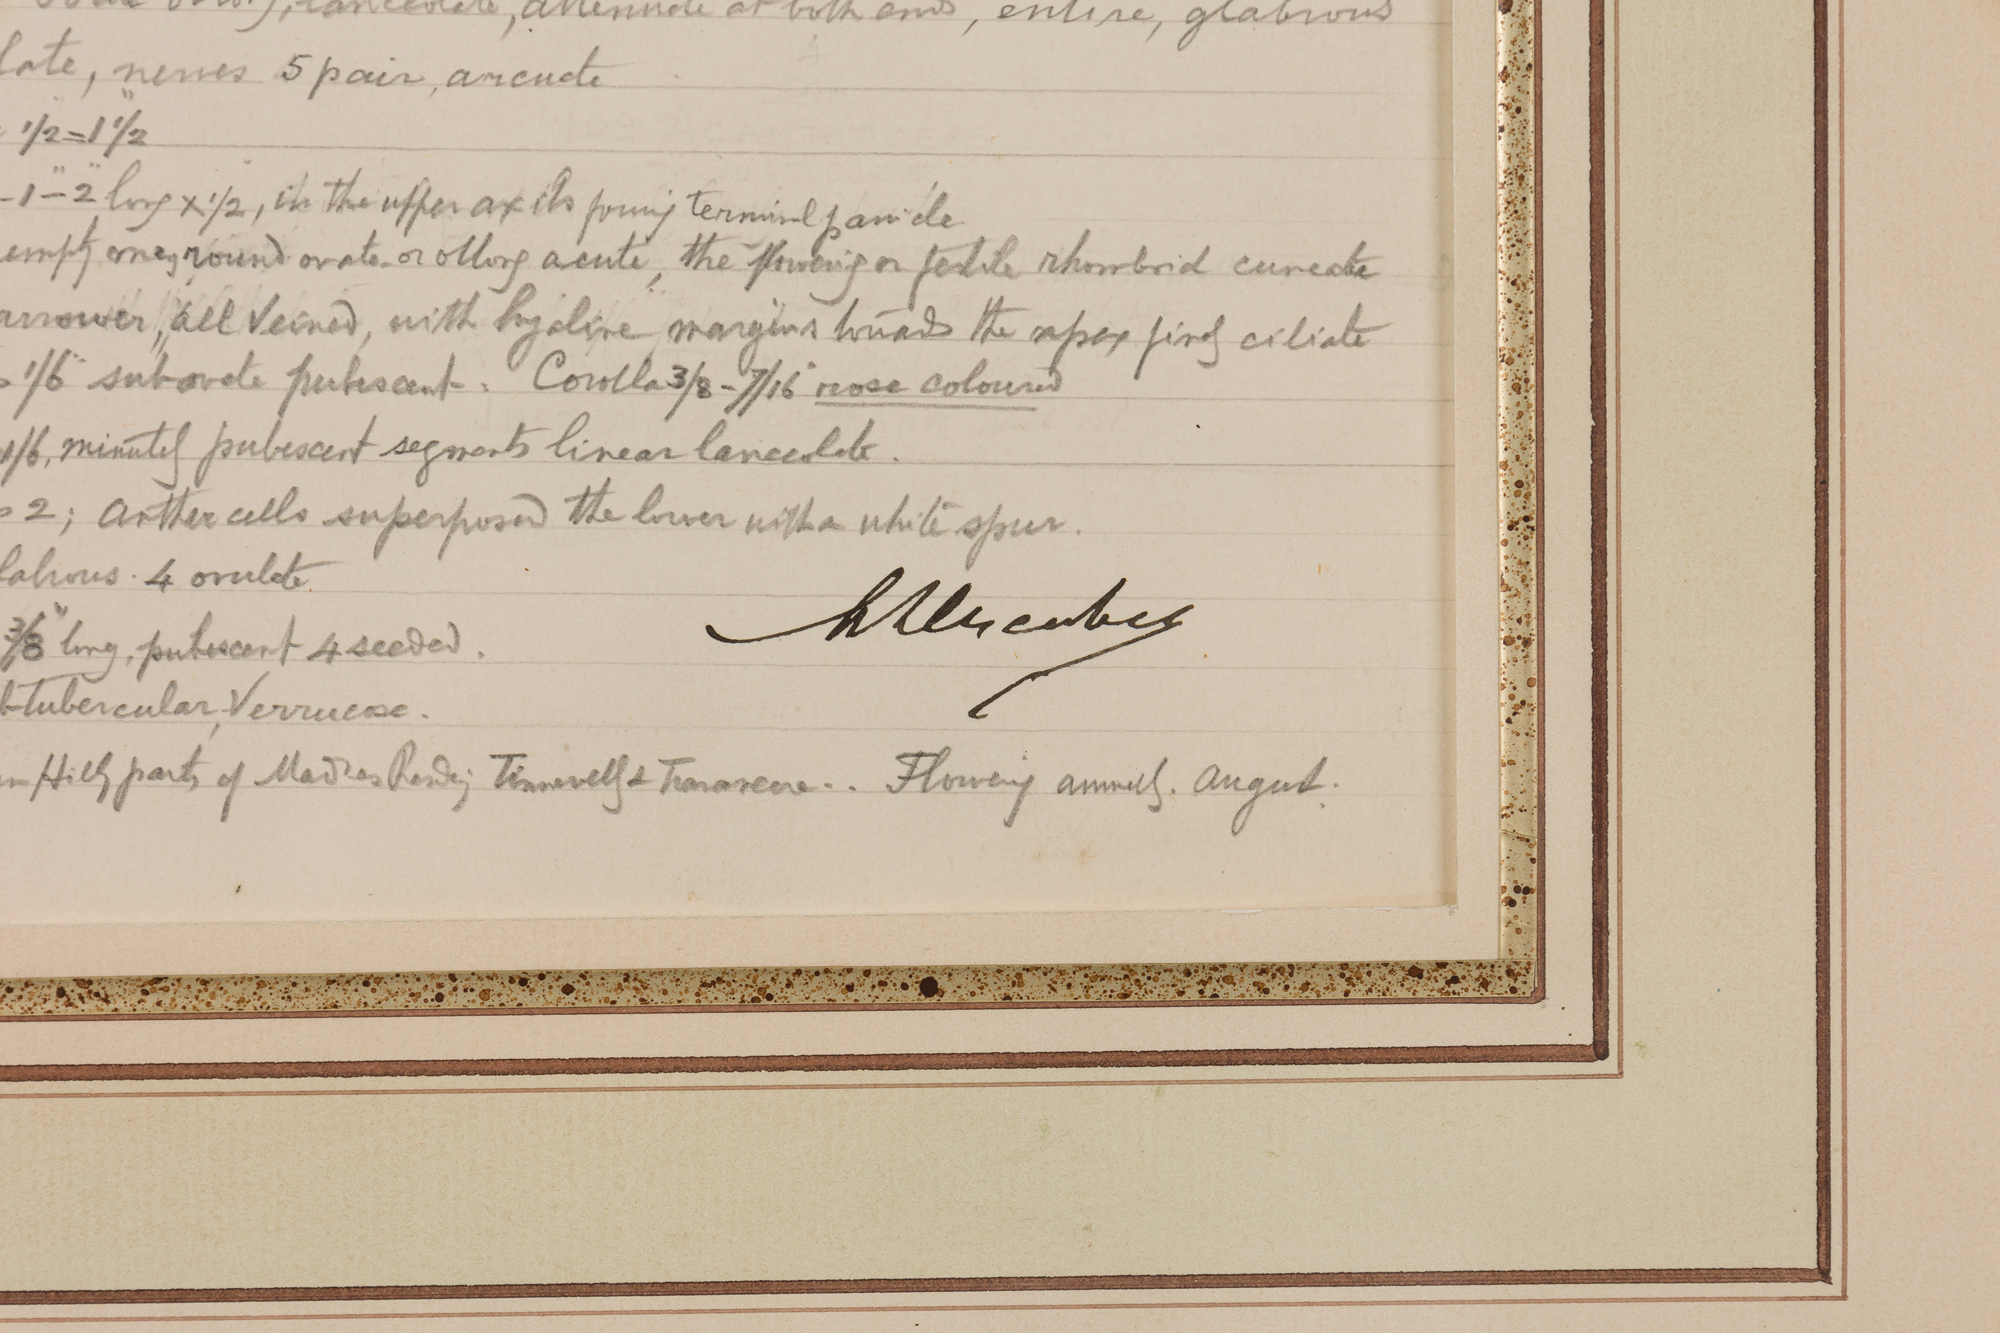 lanceolate, attenuate at both ends, entire, glabrous
late, nerves 5 pair, arcuate
1/2 = 1 1/2"
- 1" - 2" long x 1/2, in the upper axils forming terminal panicle
empty ones, round ovate or oblong acute, the flowering or fertile rhomboid cuneate
arrower, all veined, with hyaline margins towards the apex finely ciliate
1/6" subovate pubescent. Corolla 3/8 - 7/16" rose coloured
1/6, minutely pubescent segments linear lanceolate.
2; anther cells superposed the lower with a white spur.
labrous. 4 ovulate
3/8" long, pubescent 4 seeded.
tubercular, verrucose.
Hilly parts of Madras Presdcy Tinnevelly & Travancore.. Flowering annually. August.